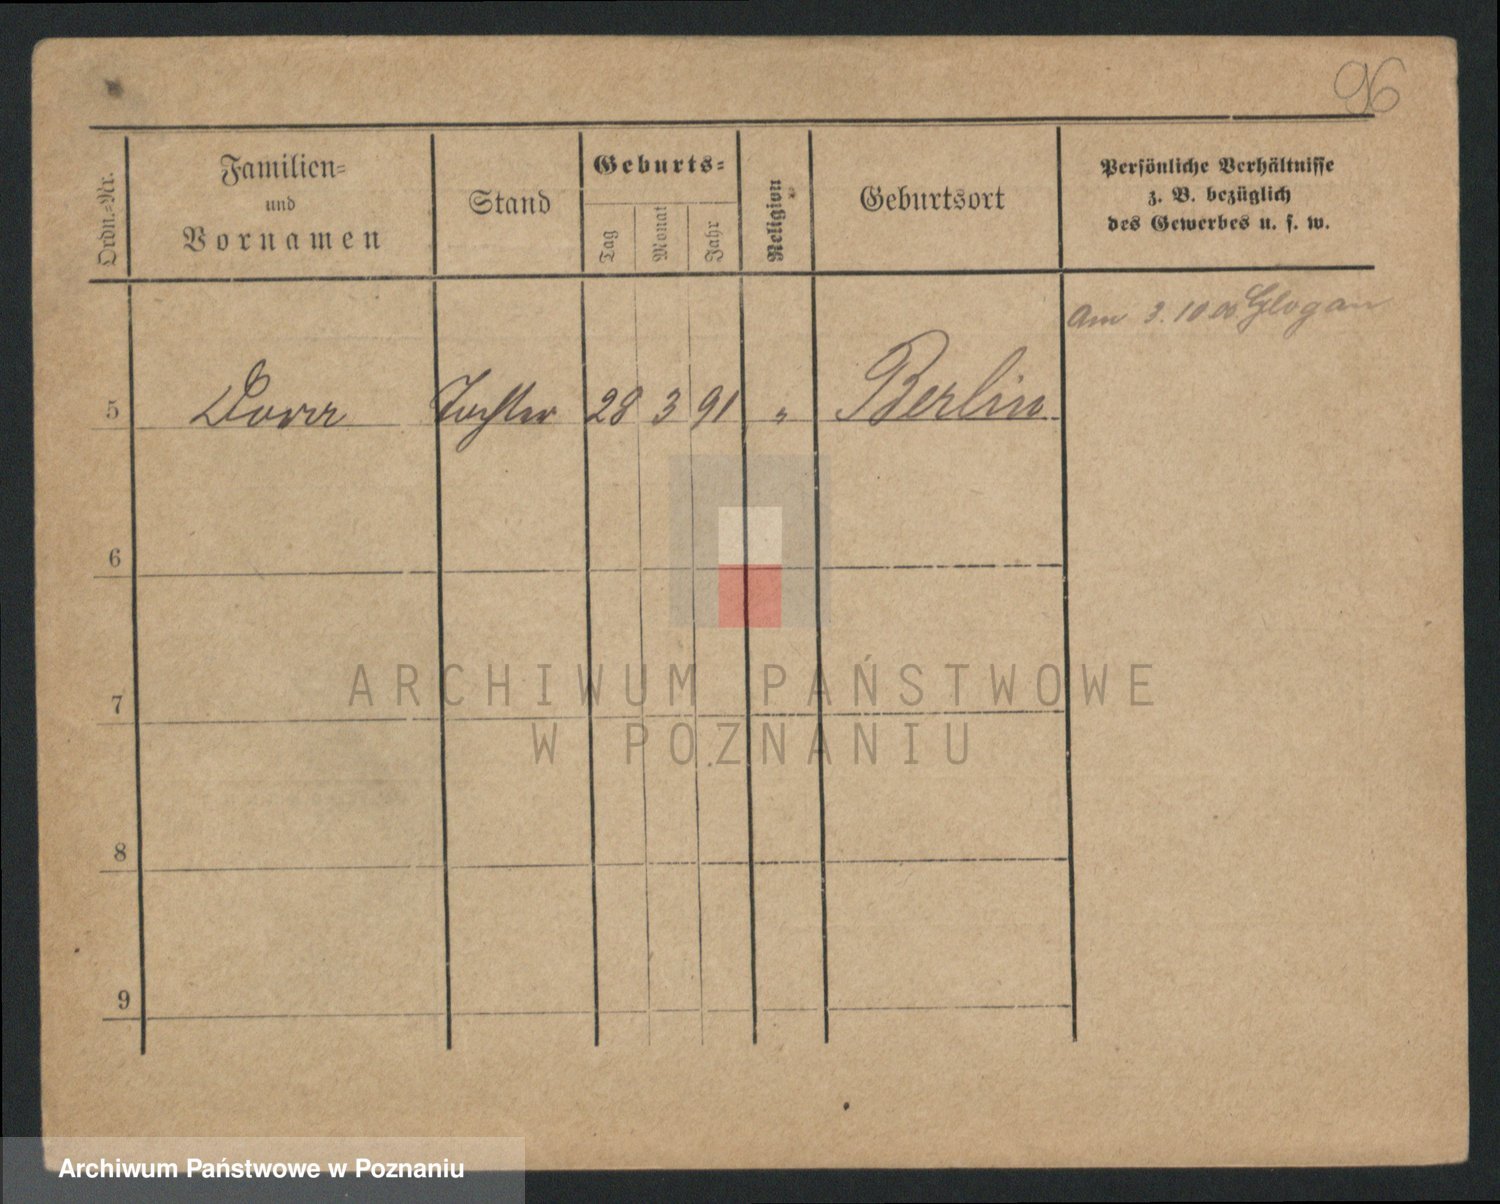 96
Ordn.-Nr.
Familien-
und
Vornamen
Stand
Geburts-
Tag
Monat
Jahr
Religion
Geburtsort
Persönliche Verhältnisse
z. B. bezüglich
des Gewerbes u. s. w.
Am 3.10.00 Glogau
5 Tochter 28 3 91 " Berlin
6
7
8
9
ARCHIWUM PAŃSTWOWE
W POZNANIU
Archiwum Państwowe w Poznaniu